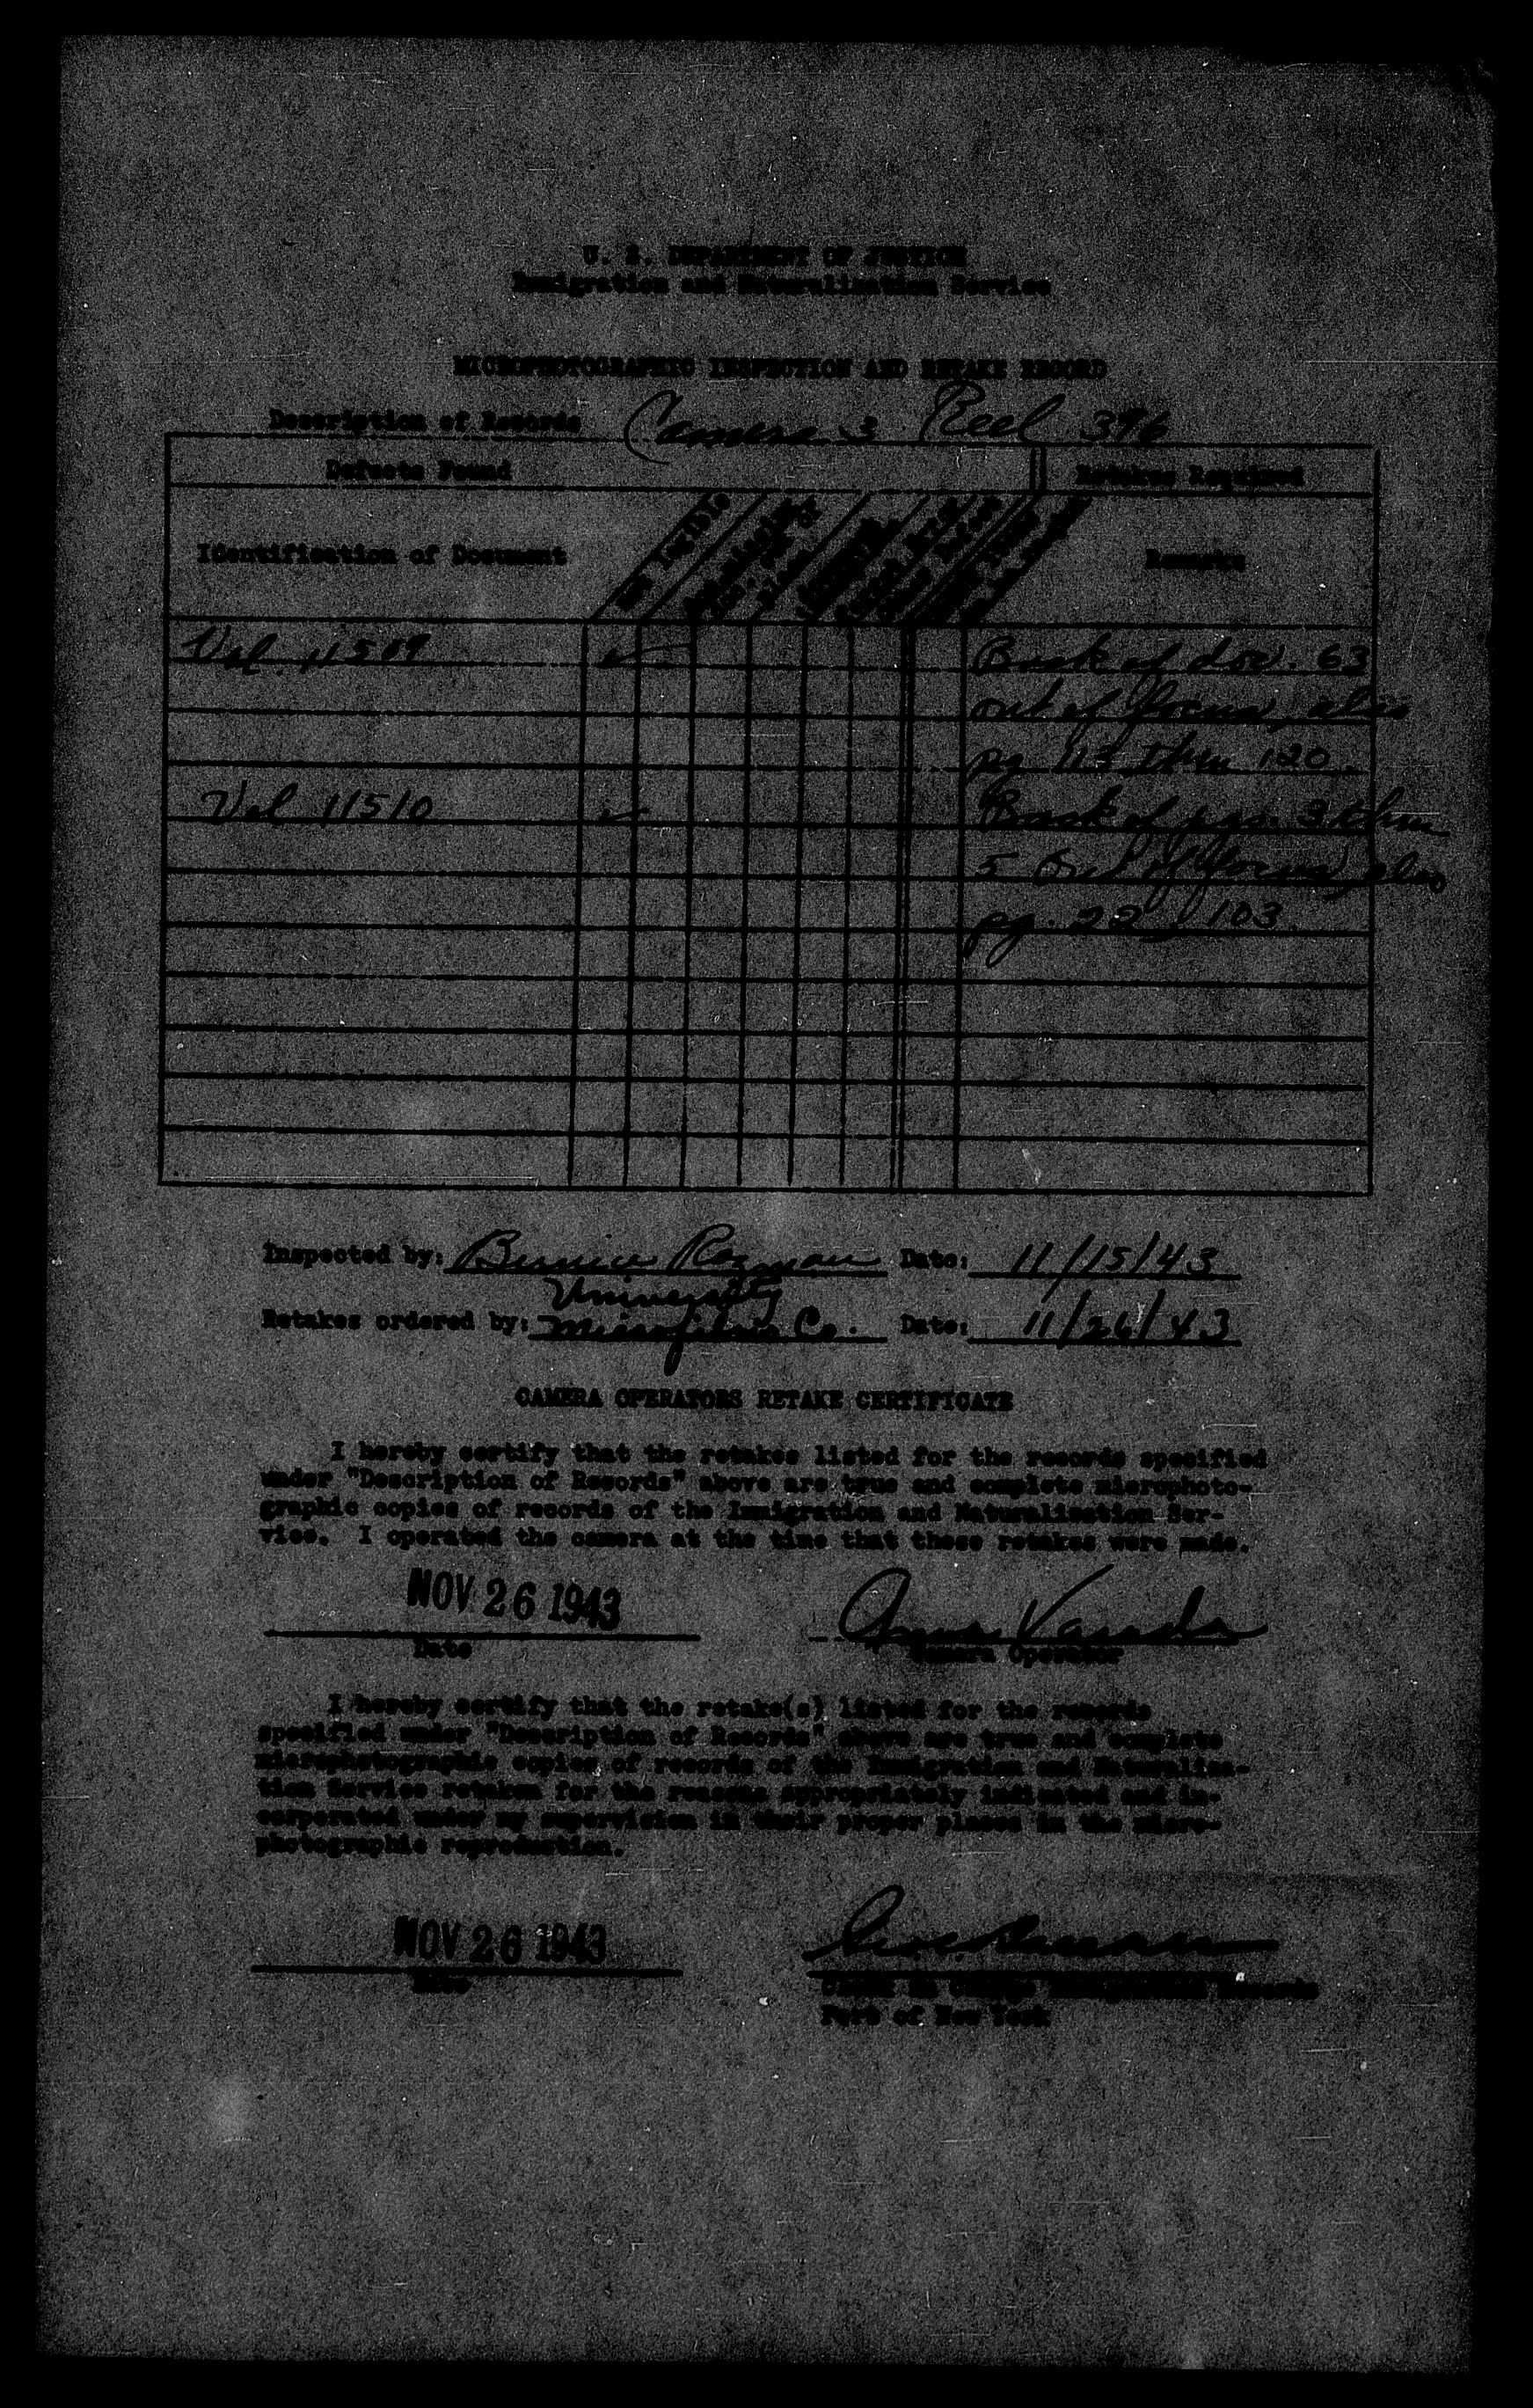 U. S. DEPARTMENT OF JUSTICE
Immigration and Naturalization Service
MICROPHOTOGRAPHIC INSPECTION AND RETAKE RECORD
Description of Records Camera 3 Reel 396
Defects Found Retakes Required
Identification of Document
Not Legible
Remarks
Vol. 11509 ✓ Back of doc. 63
out of focus, also
pg 113 thru 120
Vol 11510 ✓ Back of pgs. 3 thru
5 out of focus, also
pg. 22, 103
Inspected by: Bernice Rozman Date: 11/15/43
University
Retakes ordered by: Microfilm Co. Date: 11/26/43
CAMERA OPERATORS RETAKE CERTIFICATE
I hereby certify that the retakes listed for the records specified
under "Description of Records" above are true and complete microphoto-
graphic copies of records of the Immigration and Naturalization Ser-
vice. I operated the camera at the time that these retakes were made.
NOV 26 1943
Date Camera Operator
I hereby certify that the retake(s) listed for the records
specified under "Description of Records" above are true and complete
microphotographic copies of records of the Immigration and Naturaliza-
tion Service retaken for the reasons appropriately indicated and in-
corporated under my supervision in their proper places in the micro-
photographic reproduction.
NOV 26 1943
Date Records
Port of New York